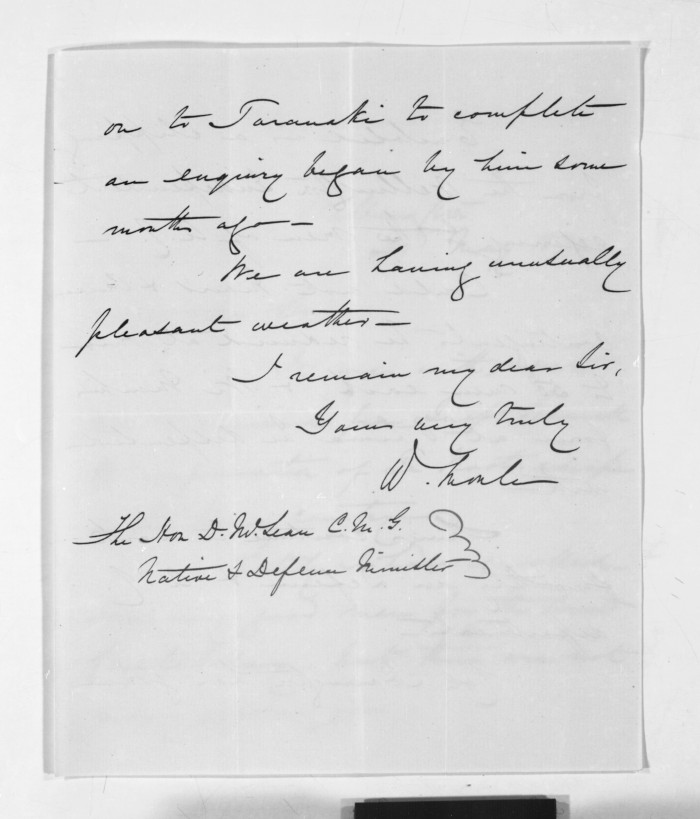 on to Taranaki to complete
an enquiry began by him some
months ago —
We are having unusually
pleasant weather —
I remain my dear Sir,
Yours very truly
W.
The Hon D. McLean C.M.G.
Native & Defence Minister